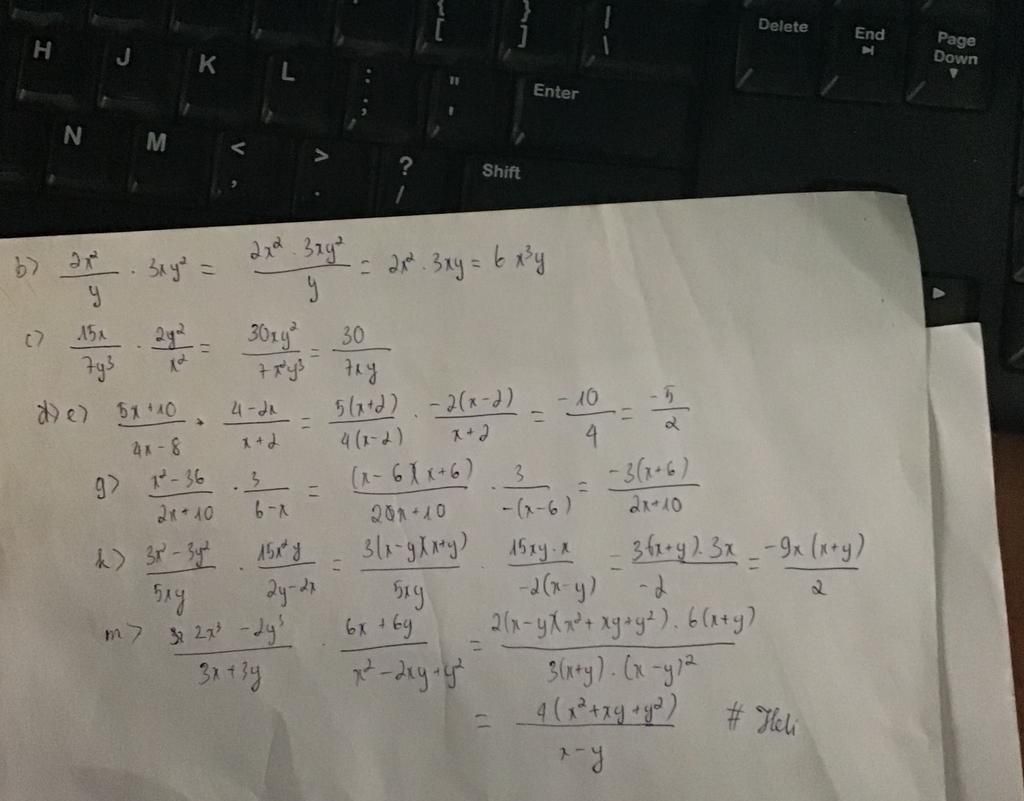 { [ } ] | \ Delete End Page Down
H J K L : ; " ' Enter
N M < , > . ? / Shift
b) \frac{2x²}{y} · 3xy² = \frac{2x² · 3xy²}{y} = 2x² · 3xy = 6x³y
c) \frac{15x}{7y³} · \frac{2y²}{x²} = \frac{30xy²}{7x²y³} = \frac{30}{7xy}
d) e) \frac{5x+10}{4x-8} · \frac{4-2x}{x+2} = \frac{5(x+2)}{4(x-2)} · \frac{-2(x-2)}{x+2} = \frac{-10}{4} = \frac{-5}{2}
g) \frac{x²-36}{2x+10} · \frac{3}{6-x} = \frac{(x-6)(x+6)}{2x+10} · \frac{3}{-(x-6)} = \frac{-3(x+6)}{2x+10}
h) \frac{3x²-3y²}{5xy} · \frac{15x²y}{2y-2x} = \frac{3(x-y)(x+y)}{5xy} · \frac{15xy·x}{-2(x-y)} = \frac{3(x+y).3x}{-2} = \frac{-9x(x+y)}{2}
m) \frac{2x³-2y³}{3x+3y} · \frac{6x+6y}{x²-2xy+y²} = \frac{2(x-y)(x²+xy+y²).6(x+y)}{3(x+y).(x-y)²}
= \frac{4(x²+xy+y²)}{x-y} #